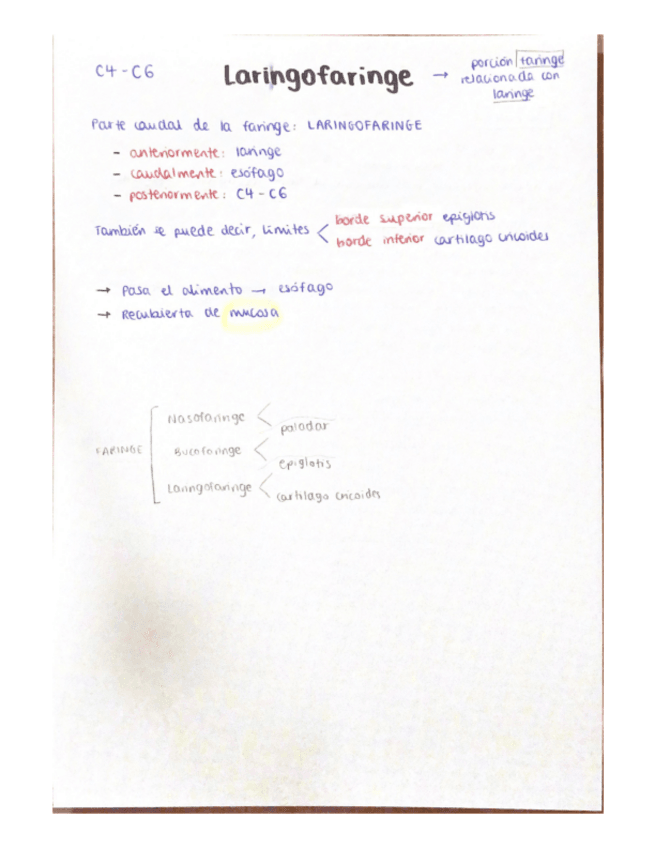 C4 - C6
Laringofaringe → porción faringe
relacionada con
laringe
Parte caudal de la faringe: LARINGOFARINGE
- anteriormente: laringe
- caudalmente: esófago
- posteriormente: C4 - C6
También se puede decir, límites < borde superior epiglotis
borde inferior cartílago cricoides
→ Pasa el alimento → esófago
→ Recubierta de mucosa
FARINGE
Nasofaringe <
paladar
Bucofaringe <
epiglotis
Laringofaringe <
cartílago cricoides